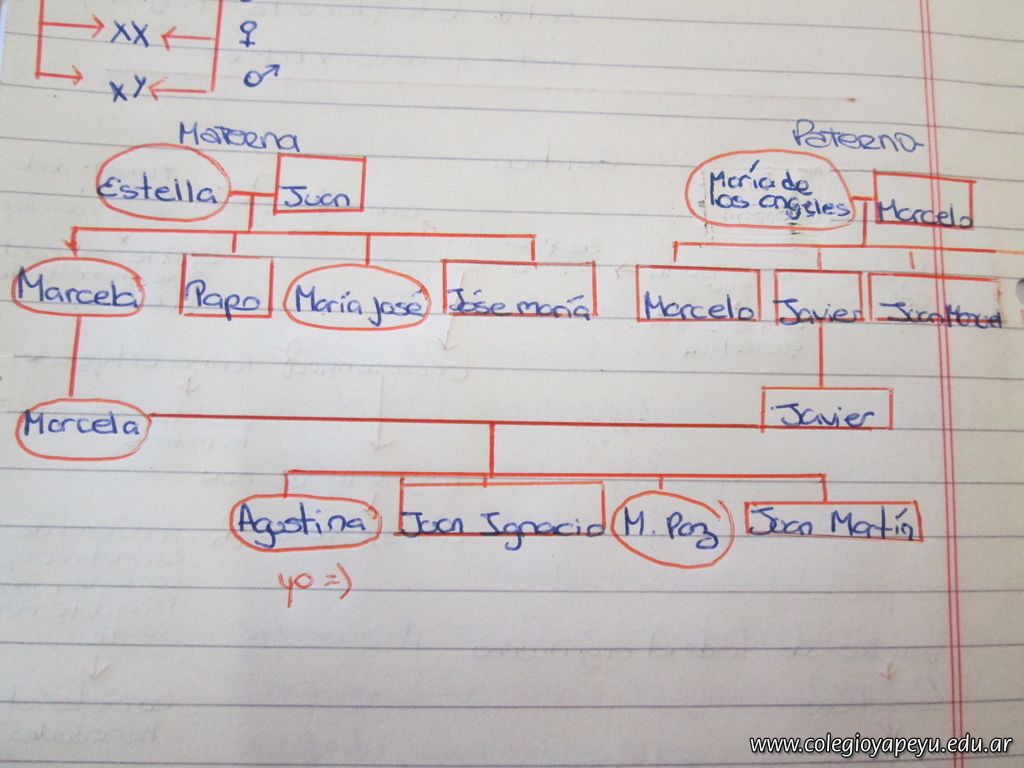 XX ♀
XY ♂
Materna
Paterno
Estella
Juan
María de
los angeles
Marcelo
Marcela
Papo
María José
Jóse maría
Marcelo
Javier
Juan Manuel
Marcela
Javier
Agustina
Juan Ignacio
M. Paz
Juan Martín
yo =)
www.colegioyapeyu.edu.ar